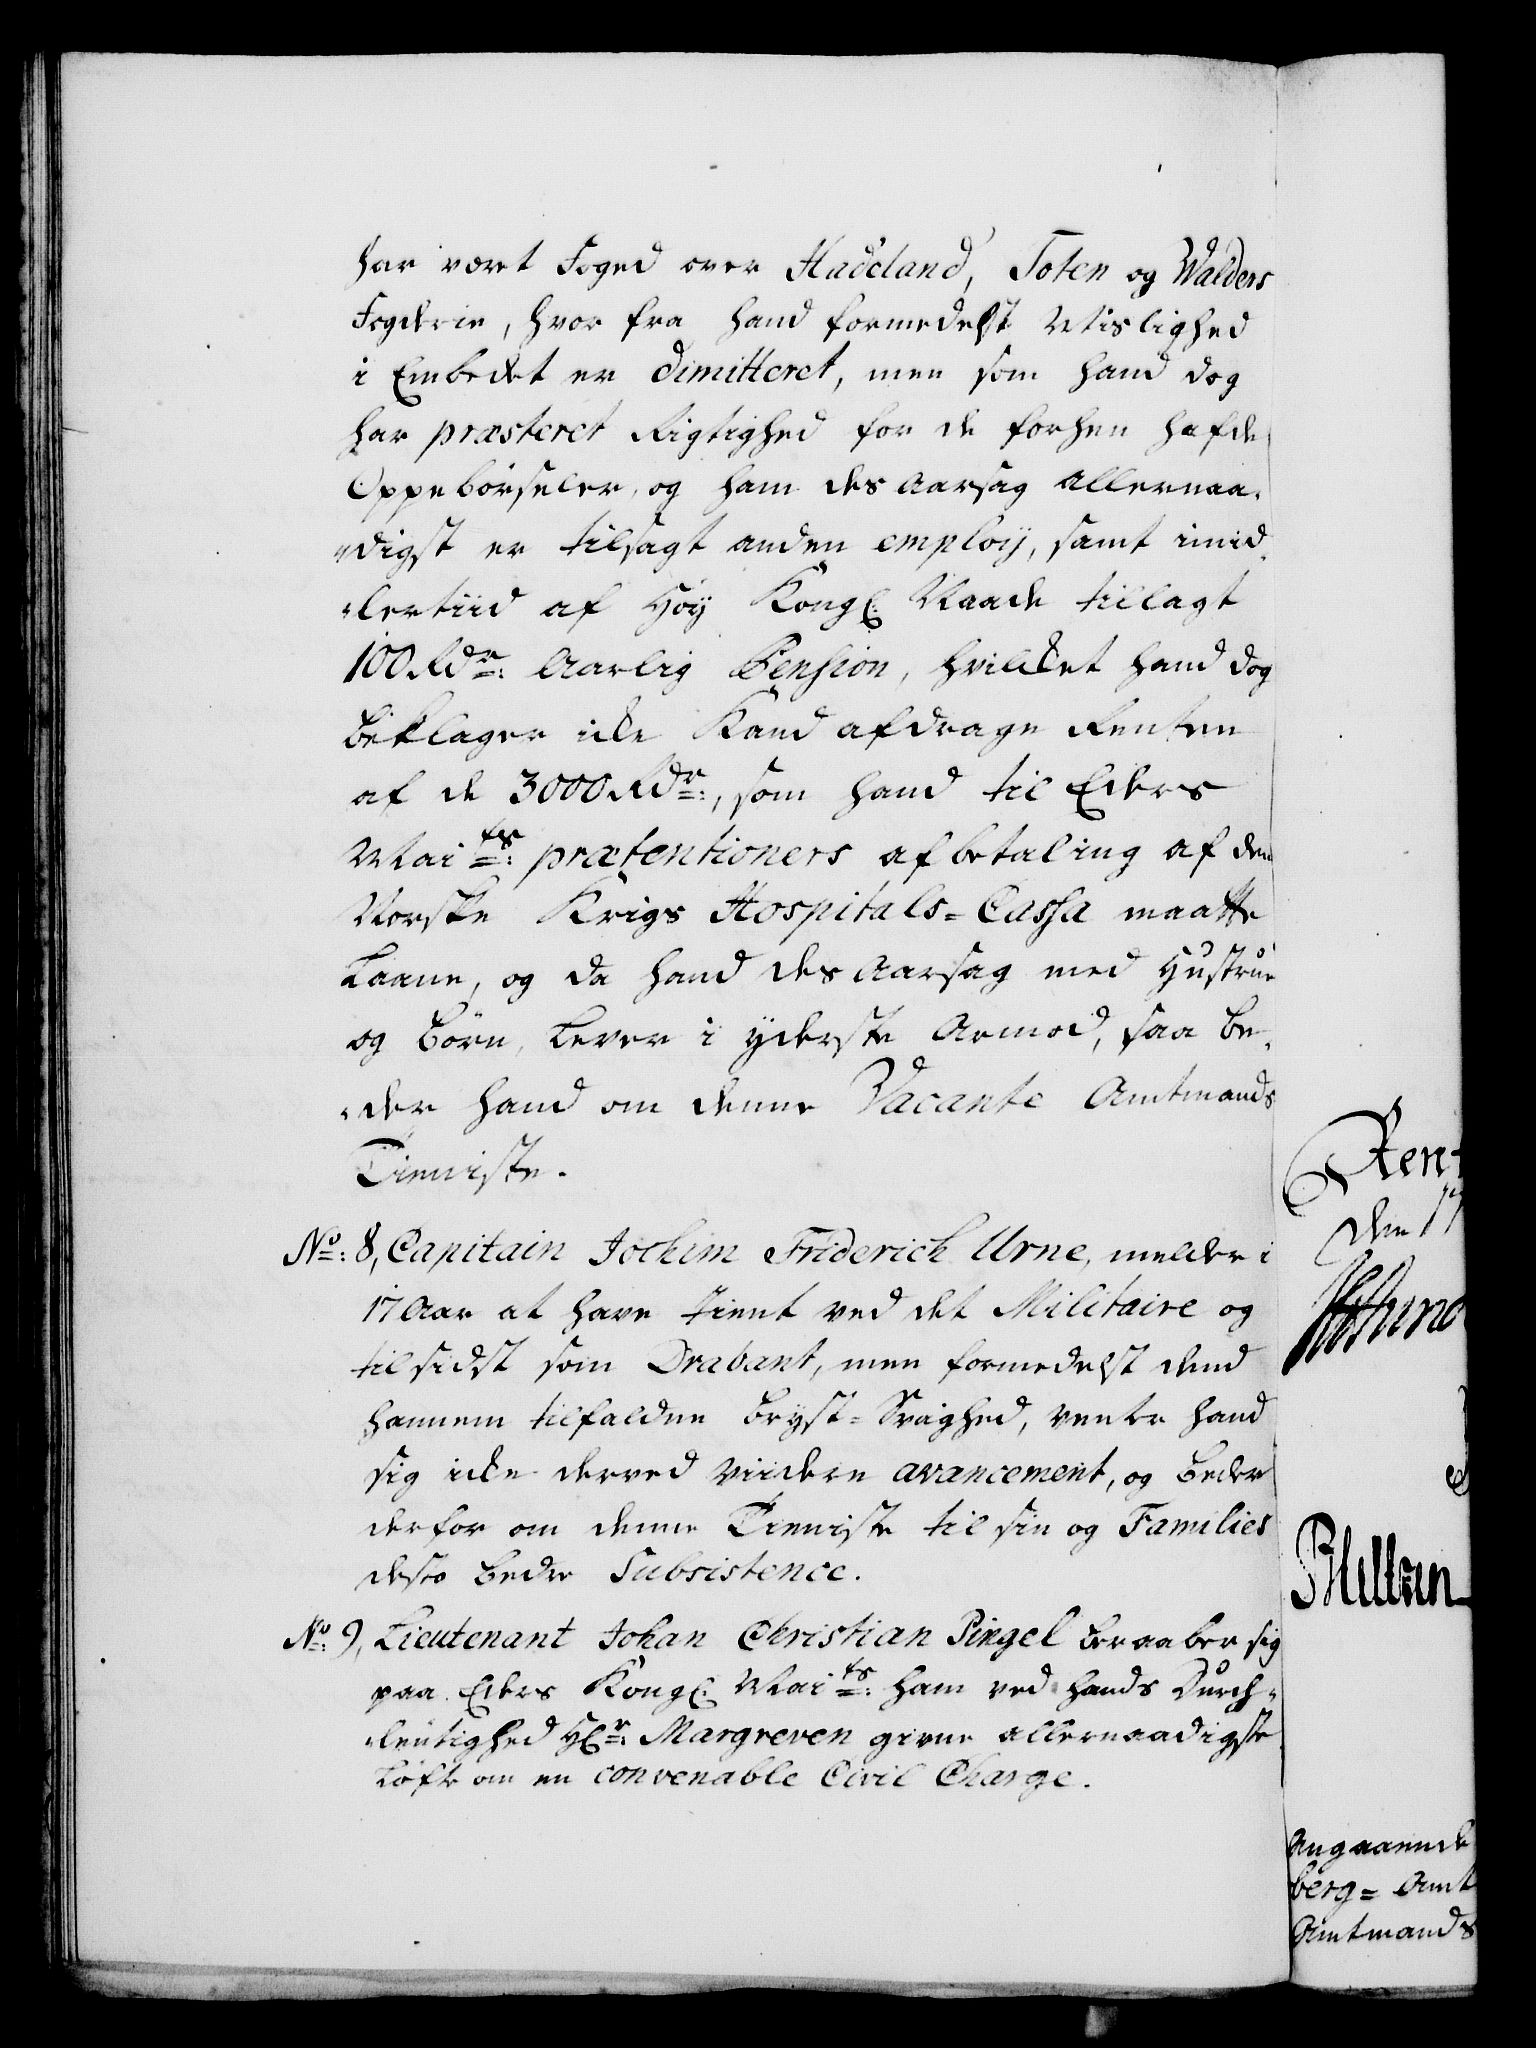 har været Foged over Hadeland, Toten og Walders
Fogderie, hvor fra hand formedelst Mislighed
i Embedet er dimitteret, men som hand dog
har præsteret Rigtighed for de forhen hafde
Oppebørseler, og ham des Aarsag allernaa-
digst er tilsagt anden employ, samt imid-
lertiid af Høy Kongl: Naade tillagt
100 Rdr: Aarlig Pension, hvilket hand dog
beklager icke Kand afdrage Renten
af de 3000 Rdr:, som hand til Eders
Maits: prætentioners afbetaling af den
Norske Krigs Hospitals-Cassa maatte
Laane, og da hand des Aarsag med Hustrue
og Børn, Lever i yderste Armod, saa be-
der hand om denne Vacante Amtmands
Tieniste.
No: 8, Capitain Jochim Friderich Urne, melder i
17 Aar at have tient ved det Militaire og
til sidst som Drabant, men formedelst dend
hannem tilfaldne Bryst-Svaghed, venter hand
sig icke derved viidere avancement, og Beder
derfor om denne Tieniste til sin og Families
desto bedre Subsistence.
No: 9, Lieutenant Johan Christian Pingel beraaber sig
paa Eders Kongl: Maits: ham ved Hands Durch-
leutighed Hr: Margreven givne allernaadigste
Løfte om en convenable Civil Charge.
Rent
den 17
Angaaende
berg- Amt
Amtmands